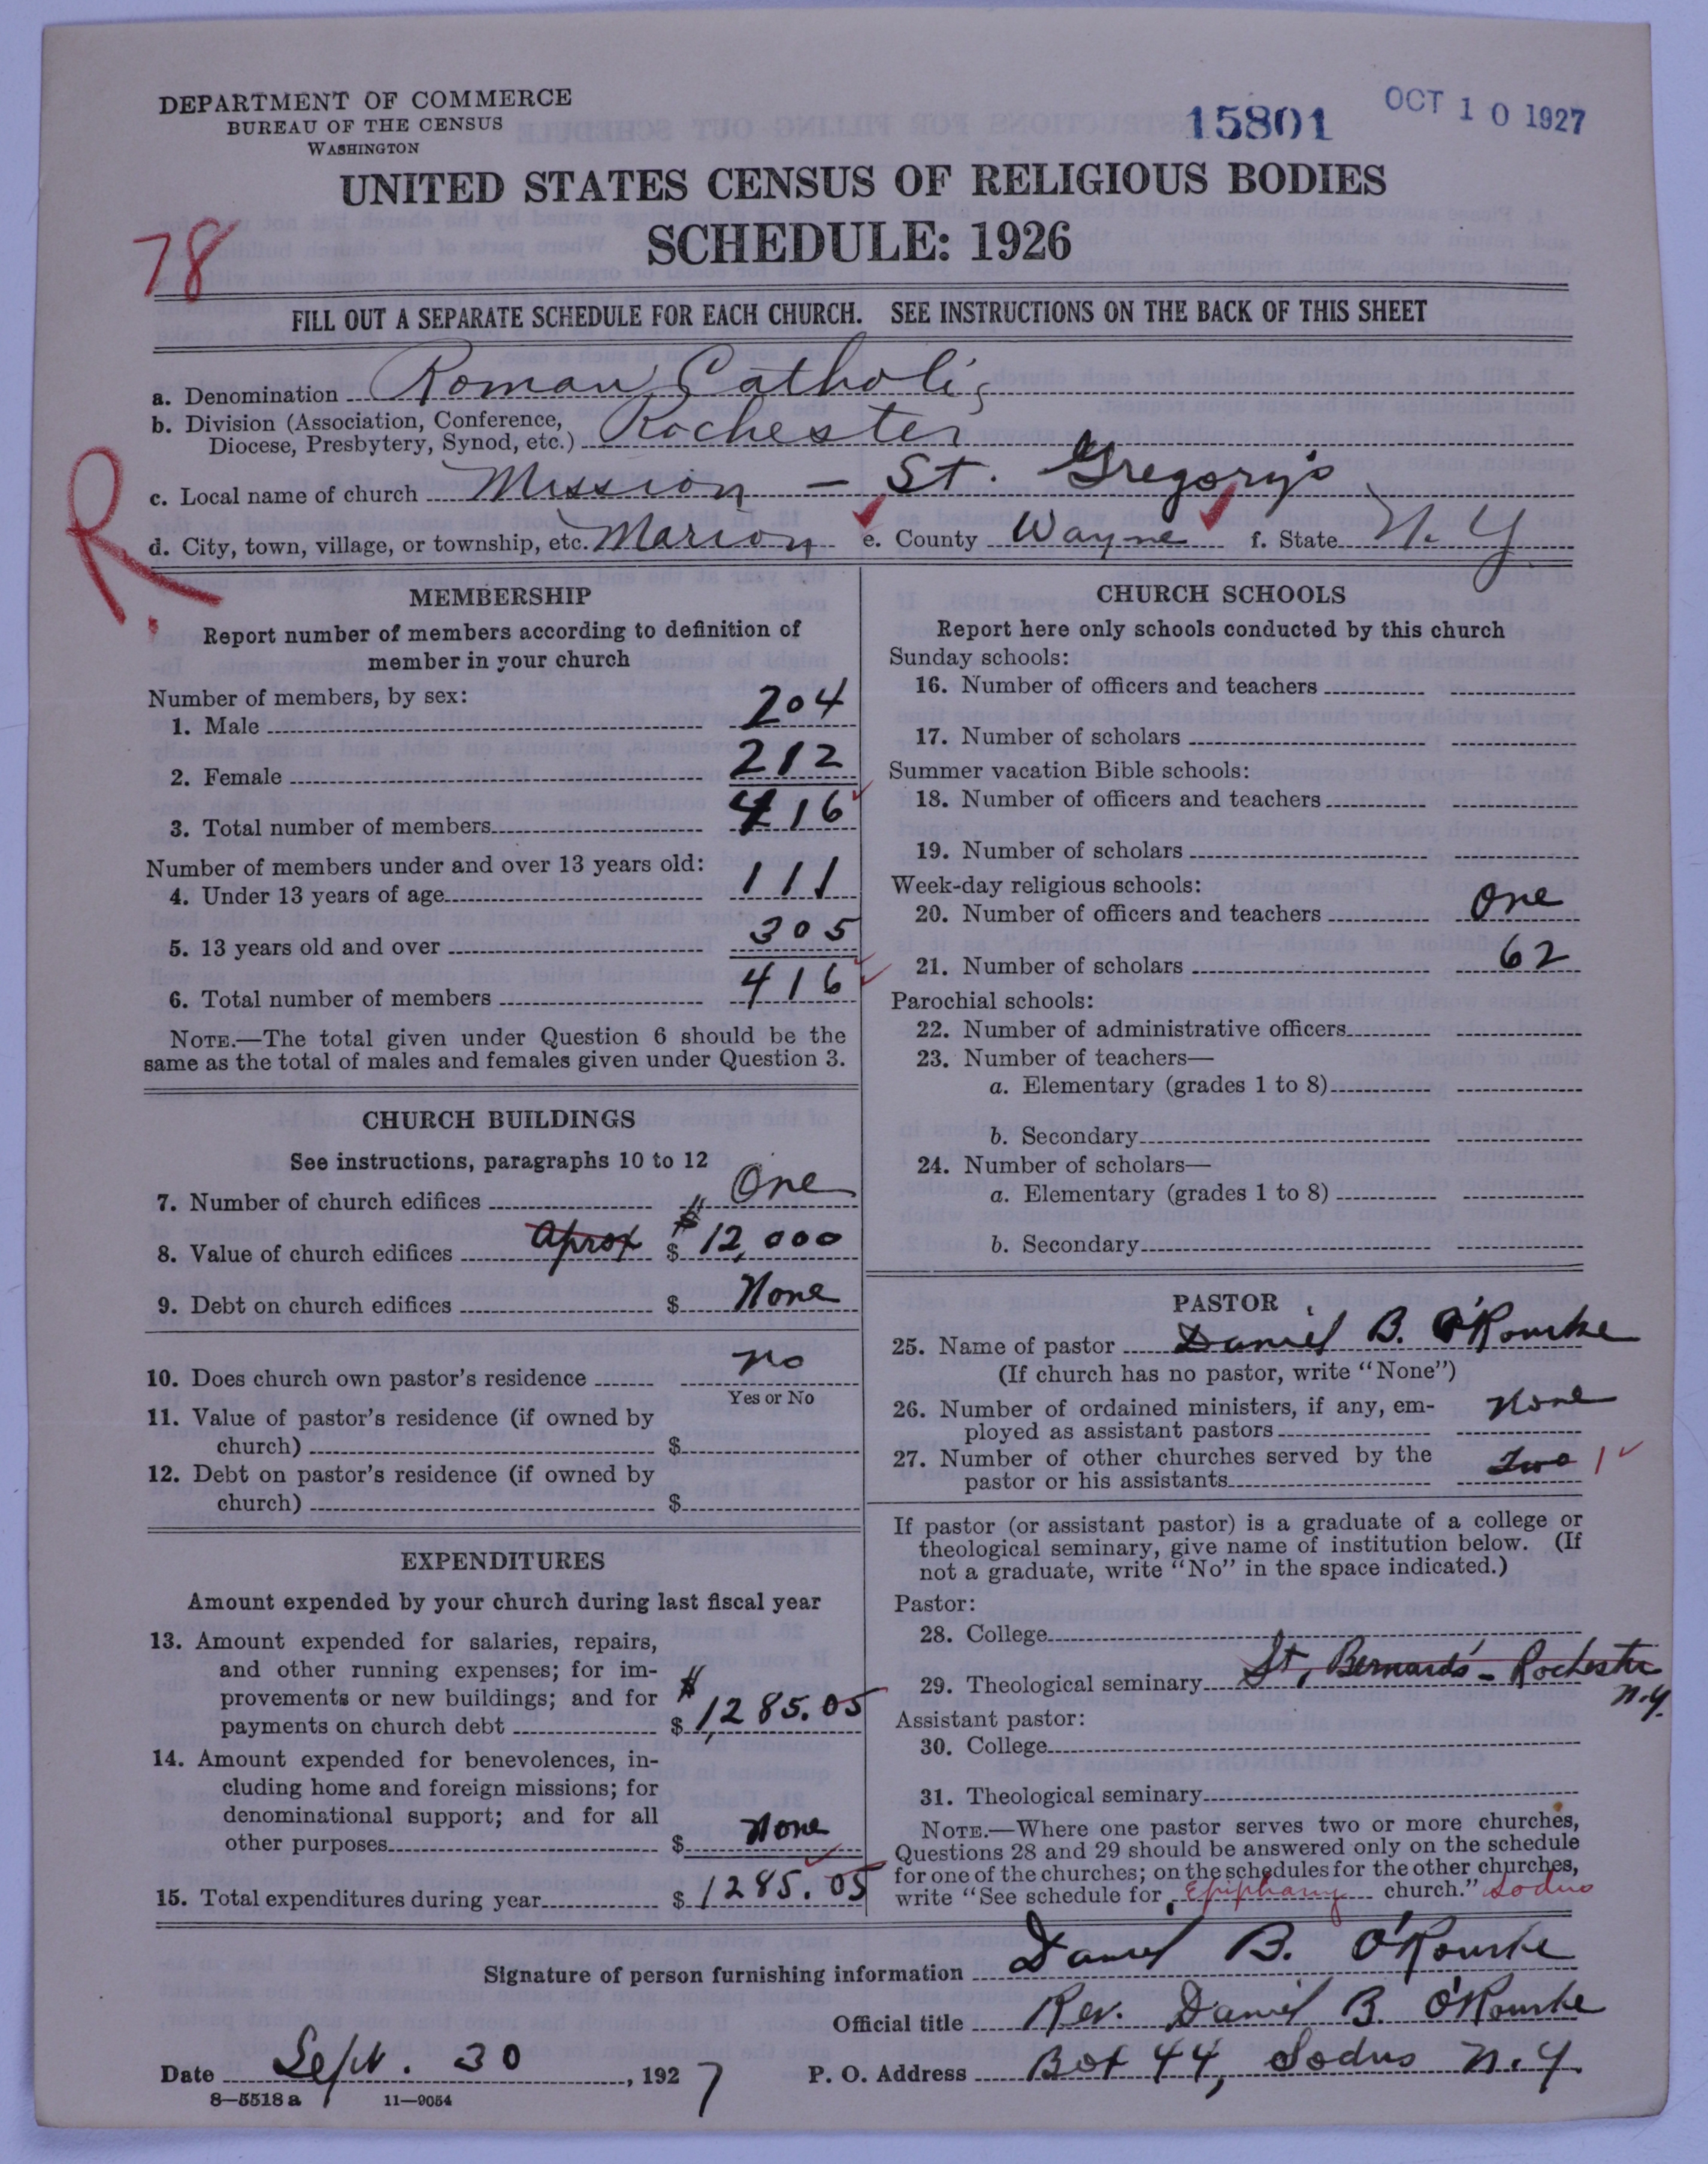 DEPARTMENT OF COMMERCE
BUREAU OF THE CENSUS
WASHINGTON
15801 OCT 10 1927
UNITED STATES CENSUS OF RELIGIOUS BODIES
SCHEDULE: 1926
78
FILL OUT A SEPARATE SCHEDULE FOR EACH CHURCH. SEE INSTRUCTIONS ON THE BACK OF THIS SHEET
a. Denomination Roman Catholic
b. Division (Association, Conference,
Diocese, Presbytery, Synod, etc.) Rochester
R.
c. Local name of church Mission - St. Gregory's
d. City, town, village, or township, etc. Marion e. County Wayne f. State N. Y
MEMBERSHIP
Report number of members according to definition of
member in your church
Number of members, by sex:
1. Male 204
2. Female 212
3. Total number of members 416
Number of members under and over 13 years old:
4. Under 13 years of age 111
5. 13 years old and over 305
6. Total number of members 416
NOTE.—The total given under Question 6 should be the
same as the total of males and females given under Question 3.
CHURCH BUILDINGS
See instructions, paragraphs 10 to 12
7. Number of church edifices One
8. Value of church edifices Aprox $ $12,000
9. Debt on church edifices $ None
10. Does church own pastor's residence no
Yes or No
11. Value of pastor's residence (if owned by
church) $
12. Debt on pastor's residence (if owned by
church) $
EXPENDITURES
Amount expended by your church during last fiscal year
13. Amount expended for salaries, repairs,
and other running expenses; for im-
provements or new buildings; and for $
payments on church debt $ 1,285.05
14. Amount expended for benevolences, in-
cluding home and foreign missions; for
denominational support; and for all
other purposes $ None
15. Total expenditures during year $ 1285.05
CHURCH SCHOOLS
Report here only schools conducted by this church
Sunday schools:
16. Number of officers and teachers
17. Number of scholars
Summer vacation Bible schools:
18. Number of officers and teachers
19. Number of scholars
Week-day religious schools:
20. Number of officers and teachers One
21. Number of scholars 62
Parochial schools:
22. Number of administrative officers
23. Number of teachers—
a. Elementary (grades 1 to 8)
b. Secondary
24. Number of scholars—
a. Elementary (grades 1 to 8)
b. Secondary
PASTOR
25. Name of pastor Daniel B. O'Rourke
(If church has no pastor, write "None")
26. Number of ordained ministers, if any, em-
ployed as assistant pastors None
27. Number of other churches served by the
pastor or his assistants Two 1
If pastor (or assistant pastor) is a graduate of a college or
theological seminary, give name of institution below. (If
not a graduate, write "No" in the space indicated.)
Pastor:
28. College
29. Theological seminary St. Bernard's - Rochester
N.Y.
Assistant pastor:
30. College
31. Theological seminary
NOTE.—Where one pastor serves two or more churches,
Questions 28 and 29 should be answered only on the schedule
for one of the churches; on the schedules for the other churches,
write "See schedule for Epiphany church." Sodus
Signature of person furnishing information Daniel B. O'Rourke
Official title Rev. Daniel B. O'Rourke
Date Sept. 30, 1927 P. O. Address Box 44, Sodus N.Y.
8—5518 a 11—9054